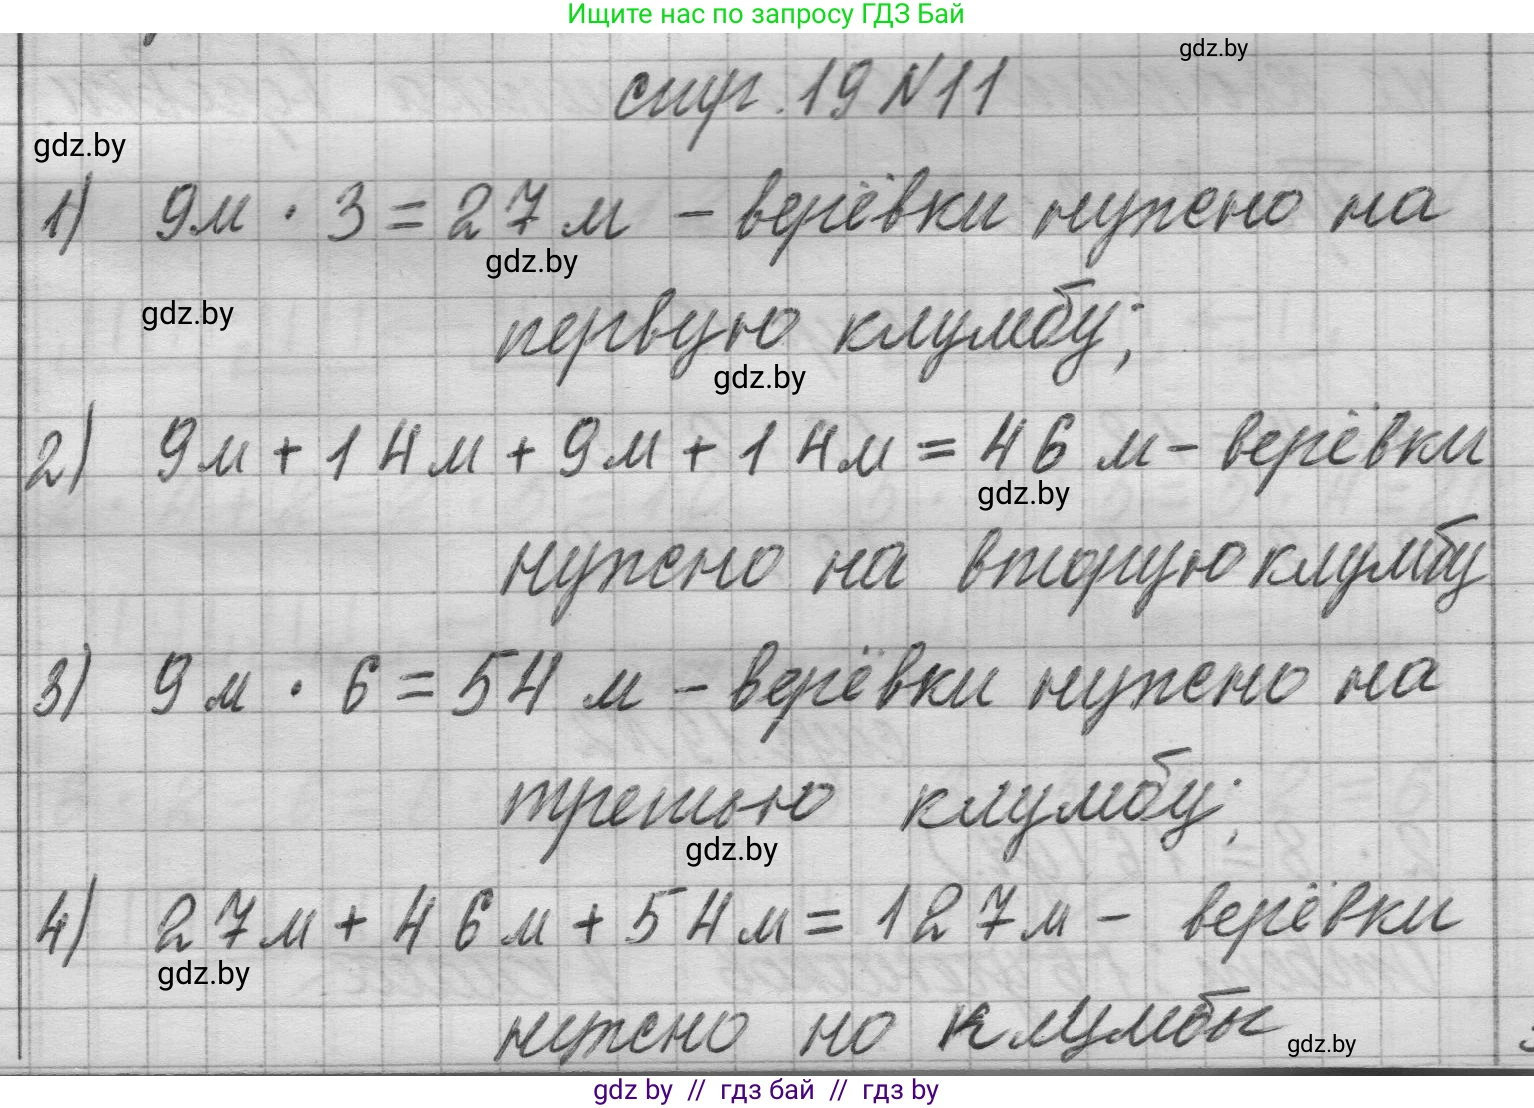 Ищите нас по запросу ГДЗ Бай
gdz.by
стр. 19 №11
gdz.by
1) 9м · 3 = 27 м – верёвки нужно на
gdz.by
gdz.by
первую клумбу;
gdz.by
2) 9м + 14м + 9м + 14м = 46 м – верёвки
gdz.by
нужно на вторую клумбу
3) 9м · 6 = 54 м – верёвки нужно на
третью клумбу;
gdz.by
4) 27м + 46м + 54м = 127м – верёвки
gdz.by
нужно но клумбы
gdz.by
gdz by // гдз бай // гдз by